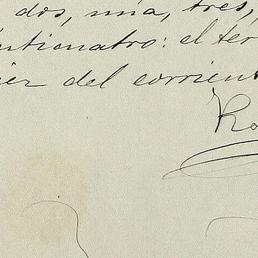 dos, mia, tres,
intiunatro: el ter
iez del corrient
Ro